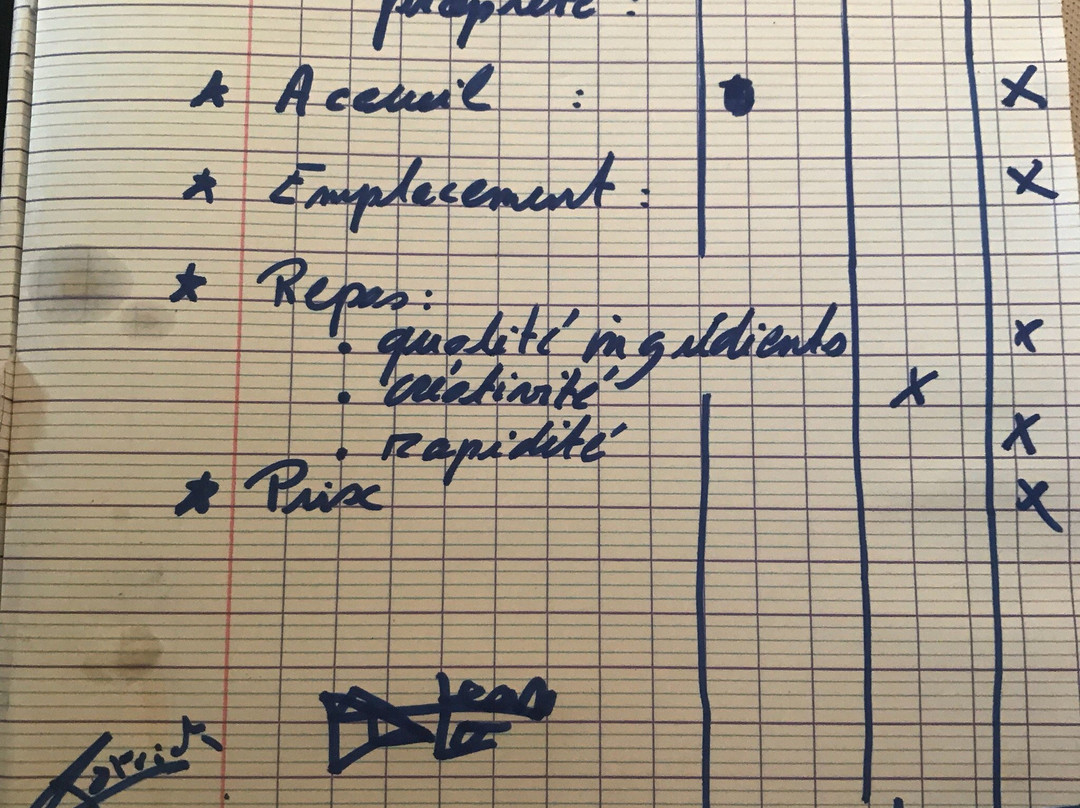 ★ Aceuil : X
★ Emplacement : X
★ Repas :
. qualité ingrédients X
. créativité X
. rapidité X
★ Prix X